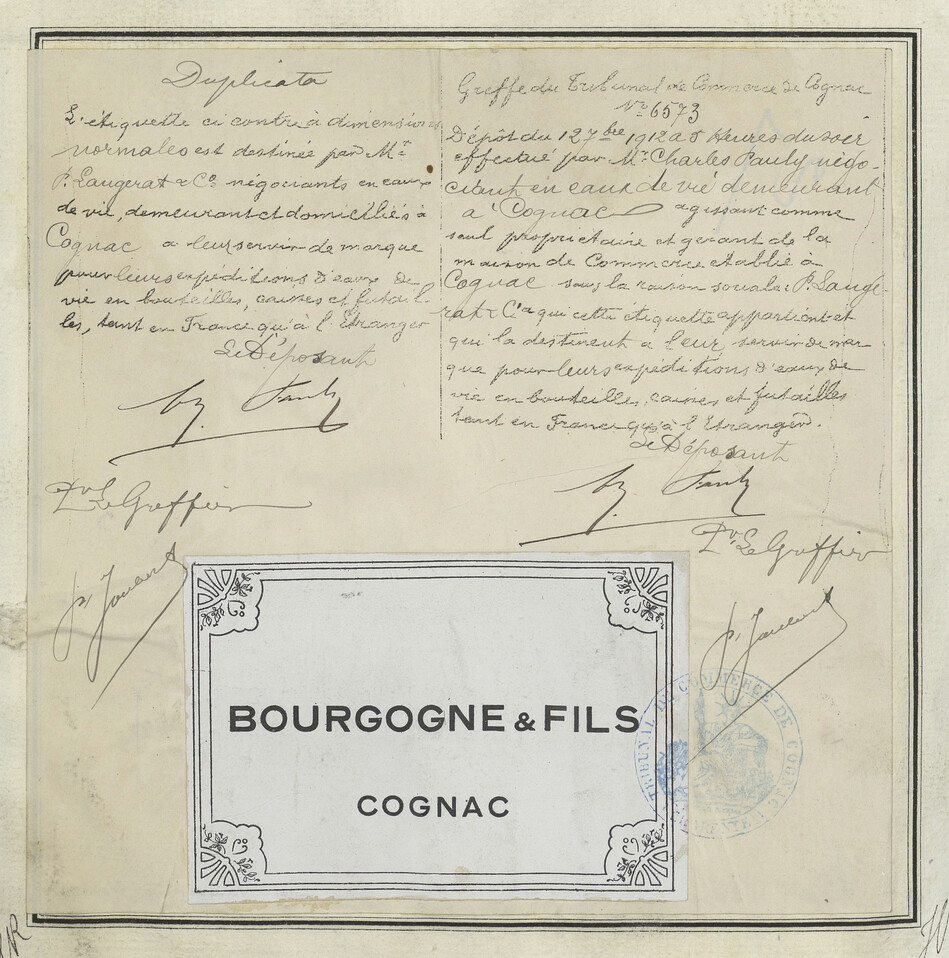 Duplicata
L'étiquette ci contre à dimensions
normales est destinée par Mrs
P. Laugerat & Co négociants en eaux
de vie, demeurant et domiciliés à
Cognac a leur servir de marque
pour leurs expéditions d'eaux de
vie en bouteilles, caisses et futail-
les, tant en France qu'à l'Etranger
Le Déposant
Pauly
Pr Le Greffier
Greffe du Tribunal de Commerce de Cognac
No 6573
Dépôt du 12 7bre 1912 a 5 Heures du soir
effectué par Mr Charles Pauly négo-
ciant en eaux de vie demeurant
a Cognac agissant comme
seul propriétaire et gérant de la
maison de Commerce établie à
Cognac sous la raison sociale: P. Lauge-
rat & Cie qui cette étiquette appartient et
qui la destinent a leur servir de mar-
que pour leurs expéditions d'eaux de
vie en bouteilles, caisses et futailles
tant en France qu'à l'Etranger.
Le Déposant
Pauly
Pr Le Greffier
BOURGOGNE & FILS
COGNAC
TRIBUNAL DE COMMERCE DE COGNAC